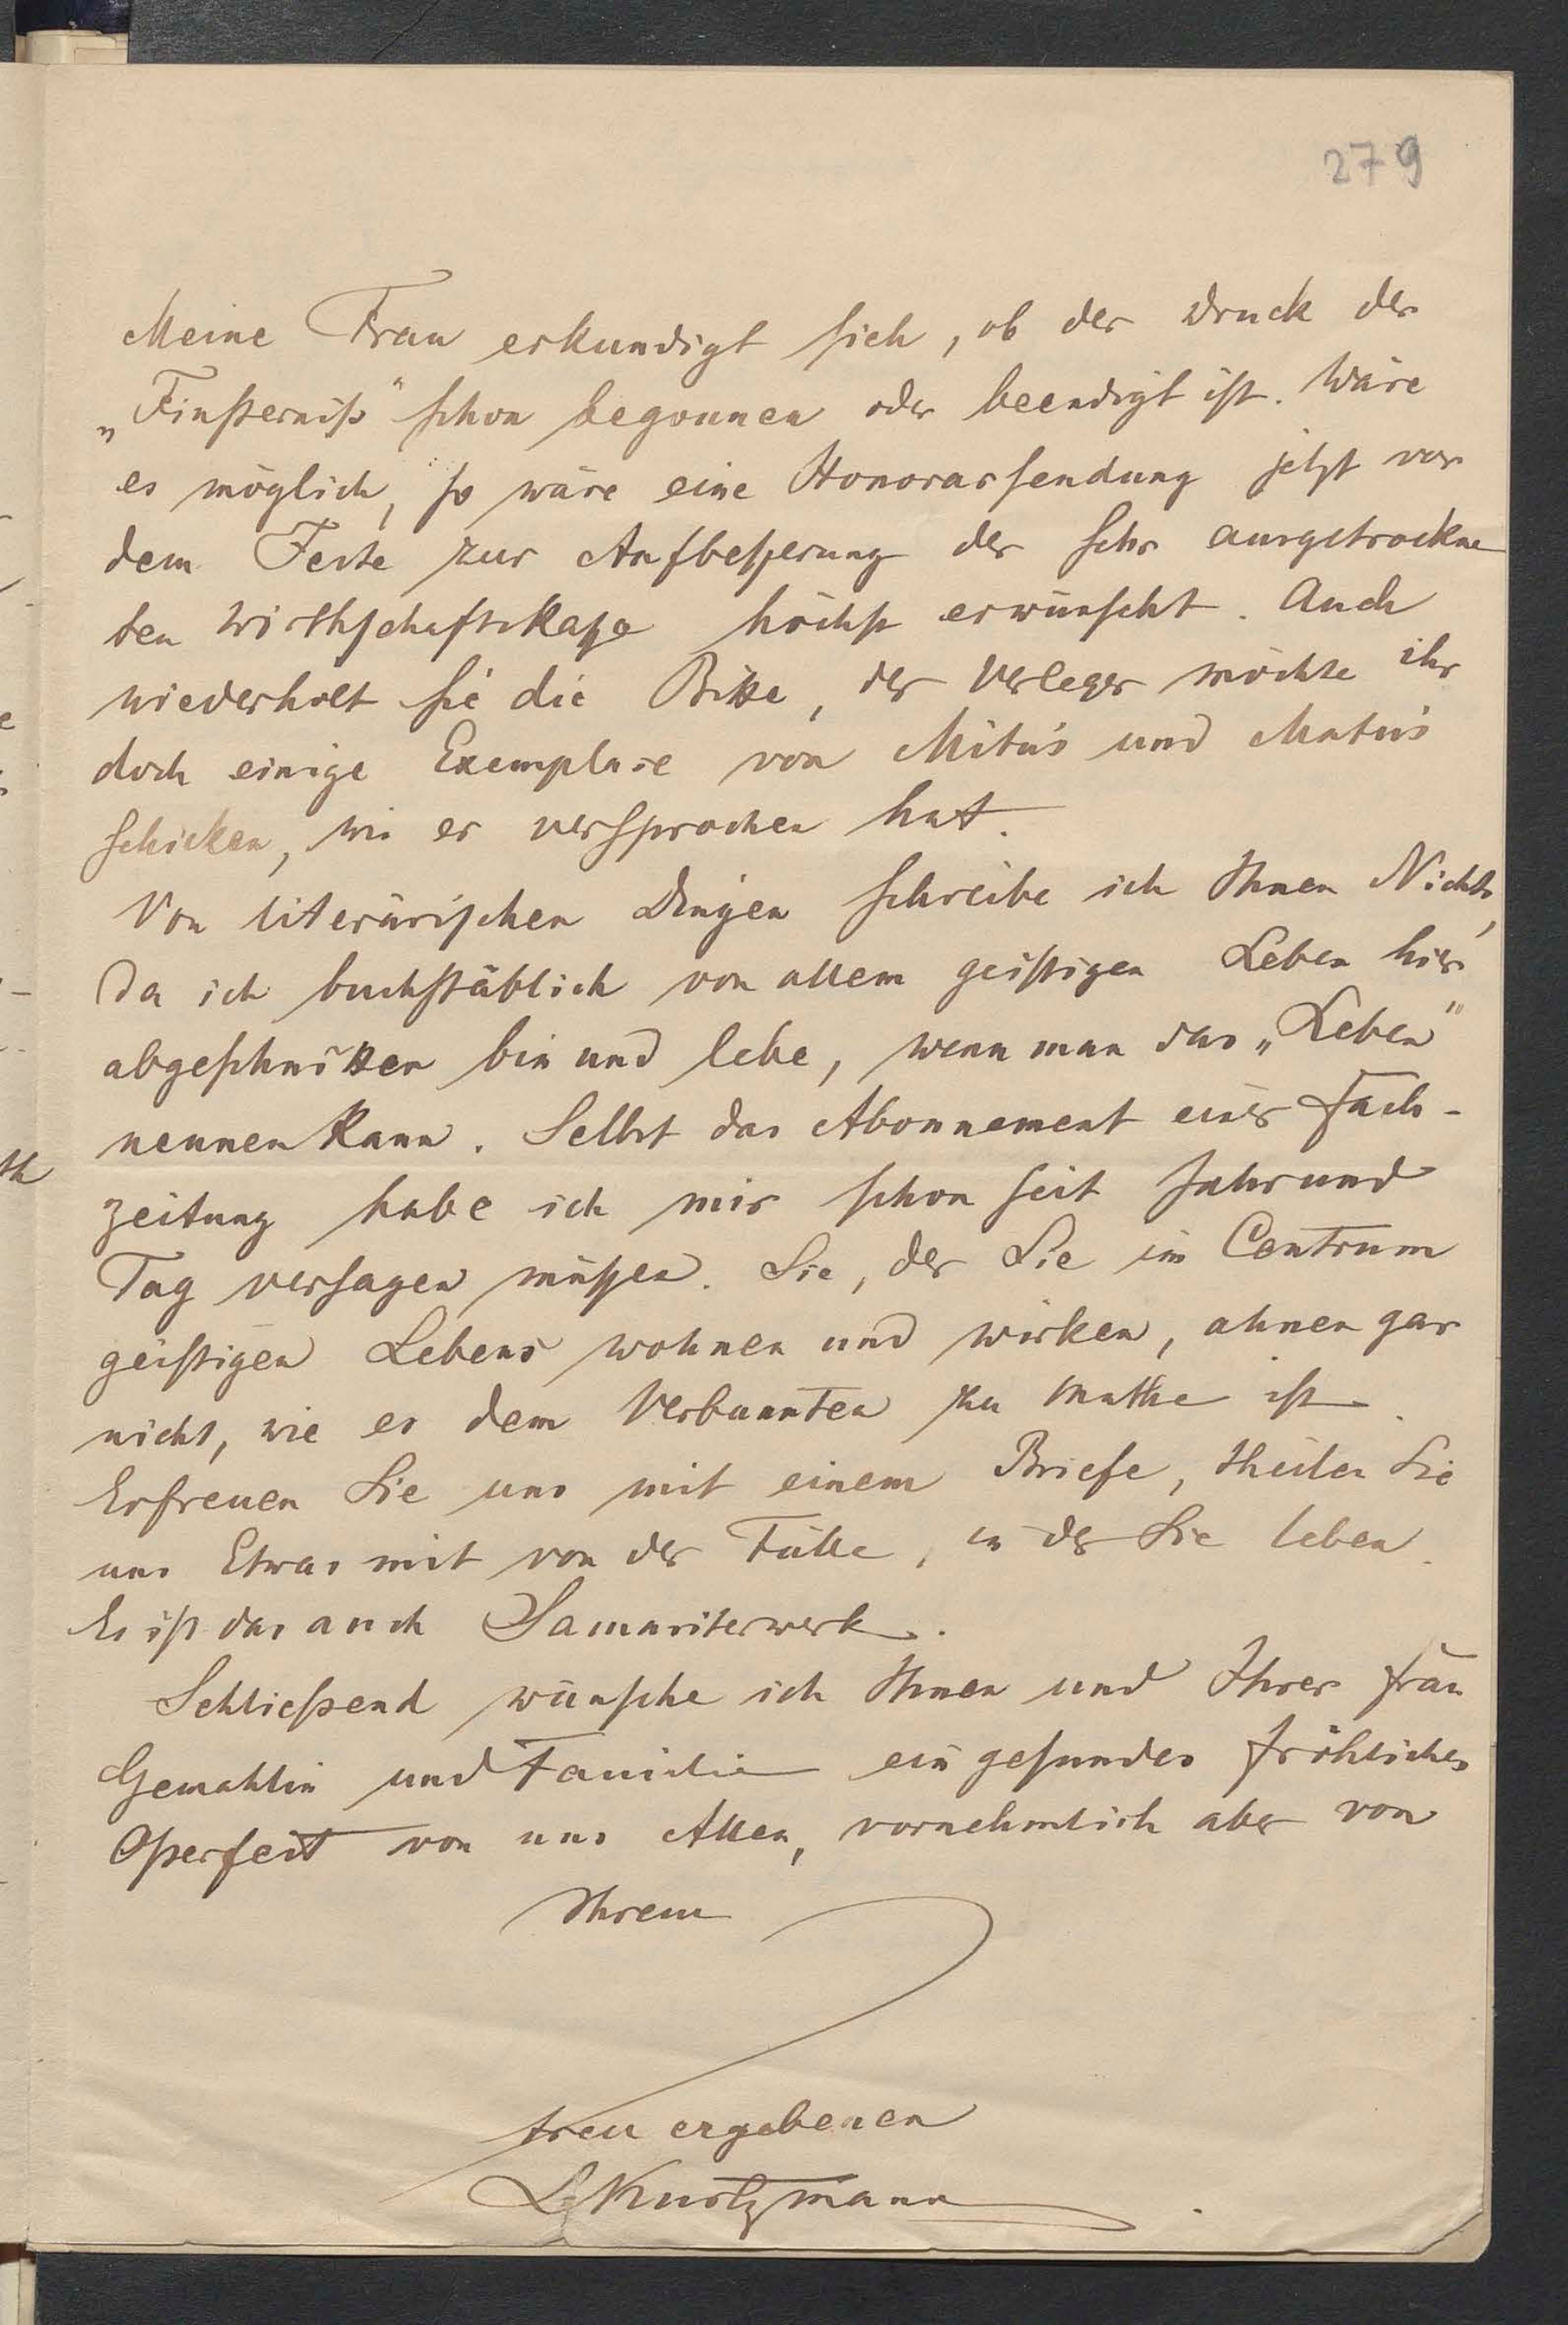 279
Meine Frau erkundigt sich, ob der Druck der
„Finsterniß“ schon begonnen oder beendigt ist. Wäre
es möglich, so wäre eine Honorarsendung jetzt vor
dem Feste zur Aufbesserung der sehr ausgetrockne
ten Wirthschaftskasse höchst erwünscht. Auch
wiederholt sie die Bitte, der Verleger möchte ihr
doch einige Exemplare von Mituś und Matuś
schicken, wie er versprochen hat.
Von literärischen Dingen schreibe ich Ihnen Nichts,
da ich buchstäblich von allem geistigen Leben hier
abgeschnitten bin und lebe, wenn man das „Leben“
nennen kann. Selbst das Abonnement einer Fach-
zeitung habe ich mir schon seit Jahr und
Tag versagen müssen. Sie, der Sie im Centrum
geistigen Lebens wohnen und wirken, ahnen gar
nicht, wie es dem Verbannten zu Muthe ist.
Erfreuen Sie uns mit einem Briefe, theilen Sie
uns Etwas mit von der Fülle, in der Sie leben.
Es ist das auch Samariterwerk.
Schließend wünsche ich Ihnen und Ihrer Frau
Gemahlin und Familie ein gesundes fröhliches
Osterfest von uns Allen, vornehmlich aber von
Ihrem
treu ergebenen
L Kurtzmann